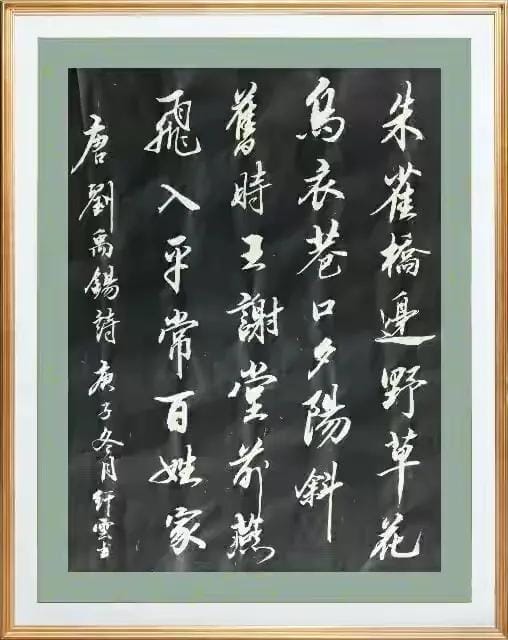 朱雀橋邊野草花
烏衣巷口夕陽斜
舊時王謝堂前燕
飛入平常百姓家
唐劉禹錫詩庚子冬月軒雲書